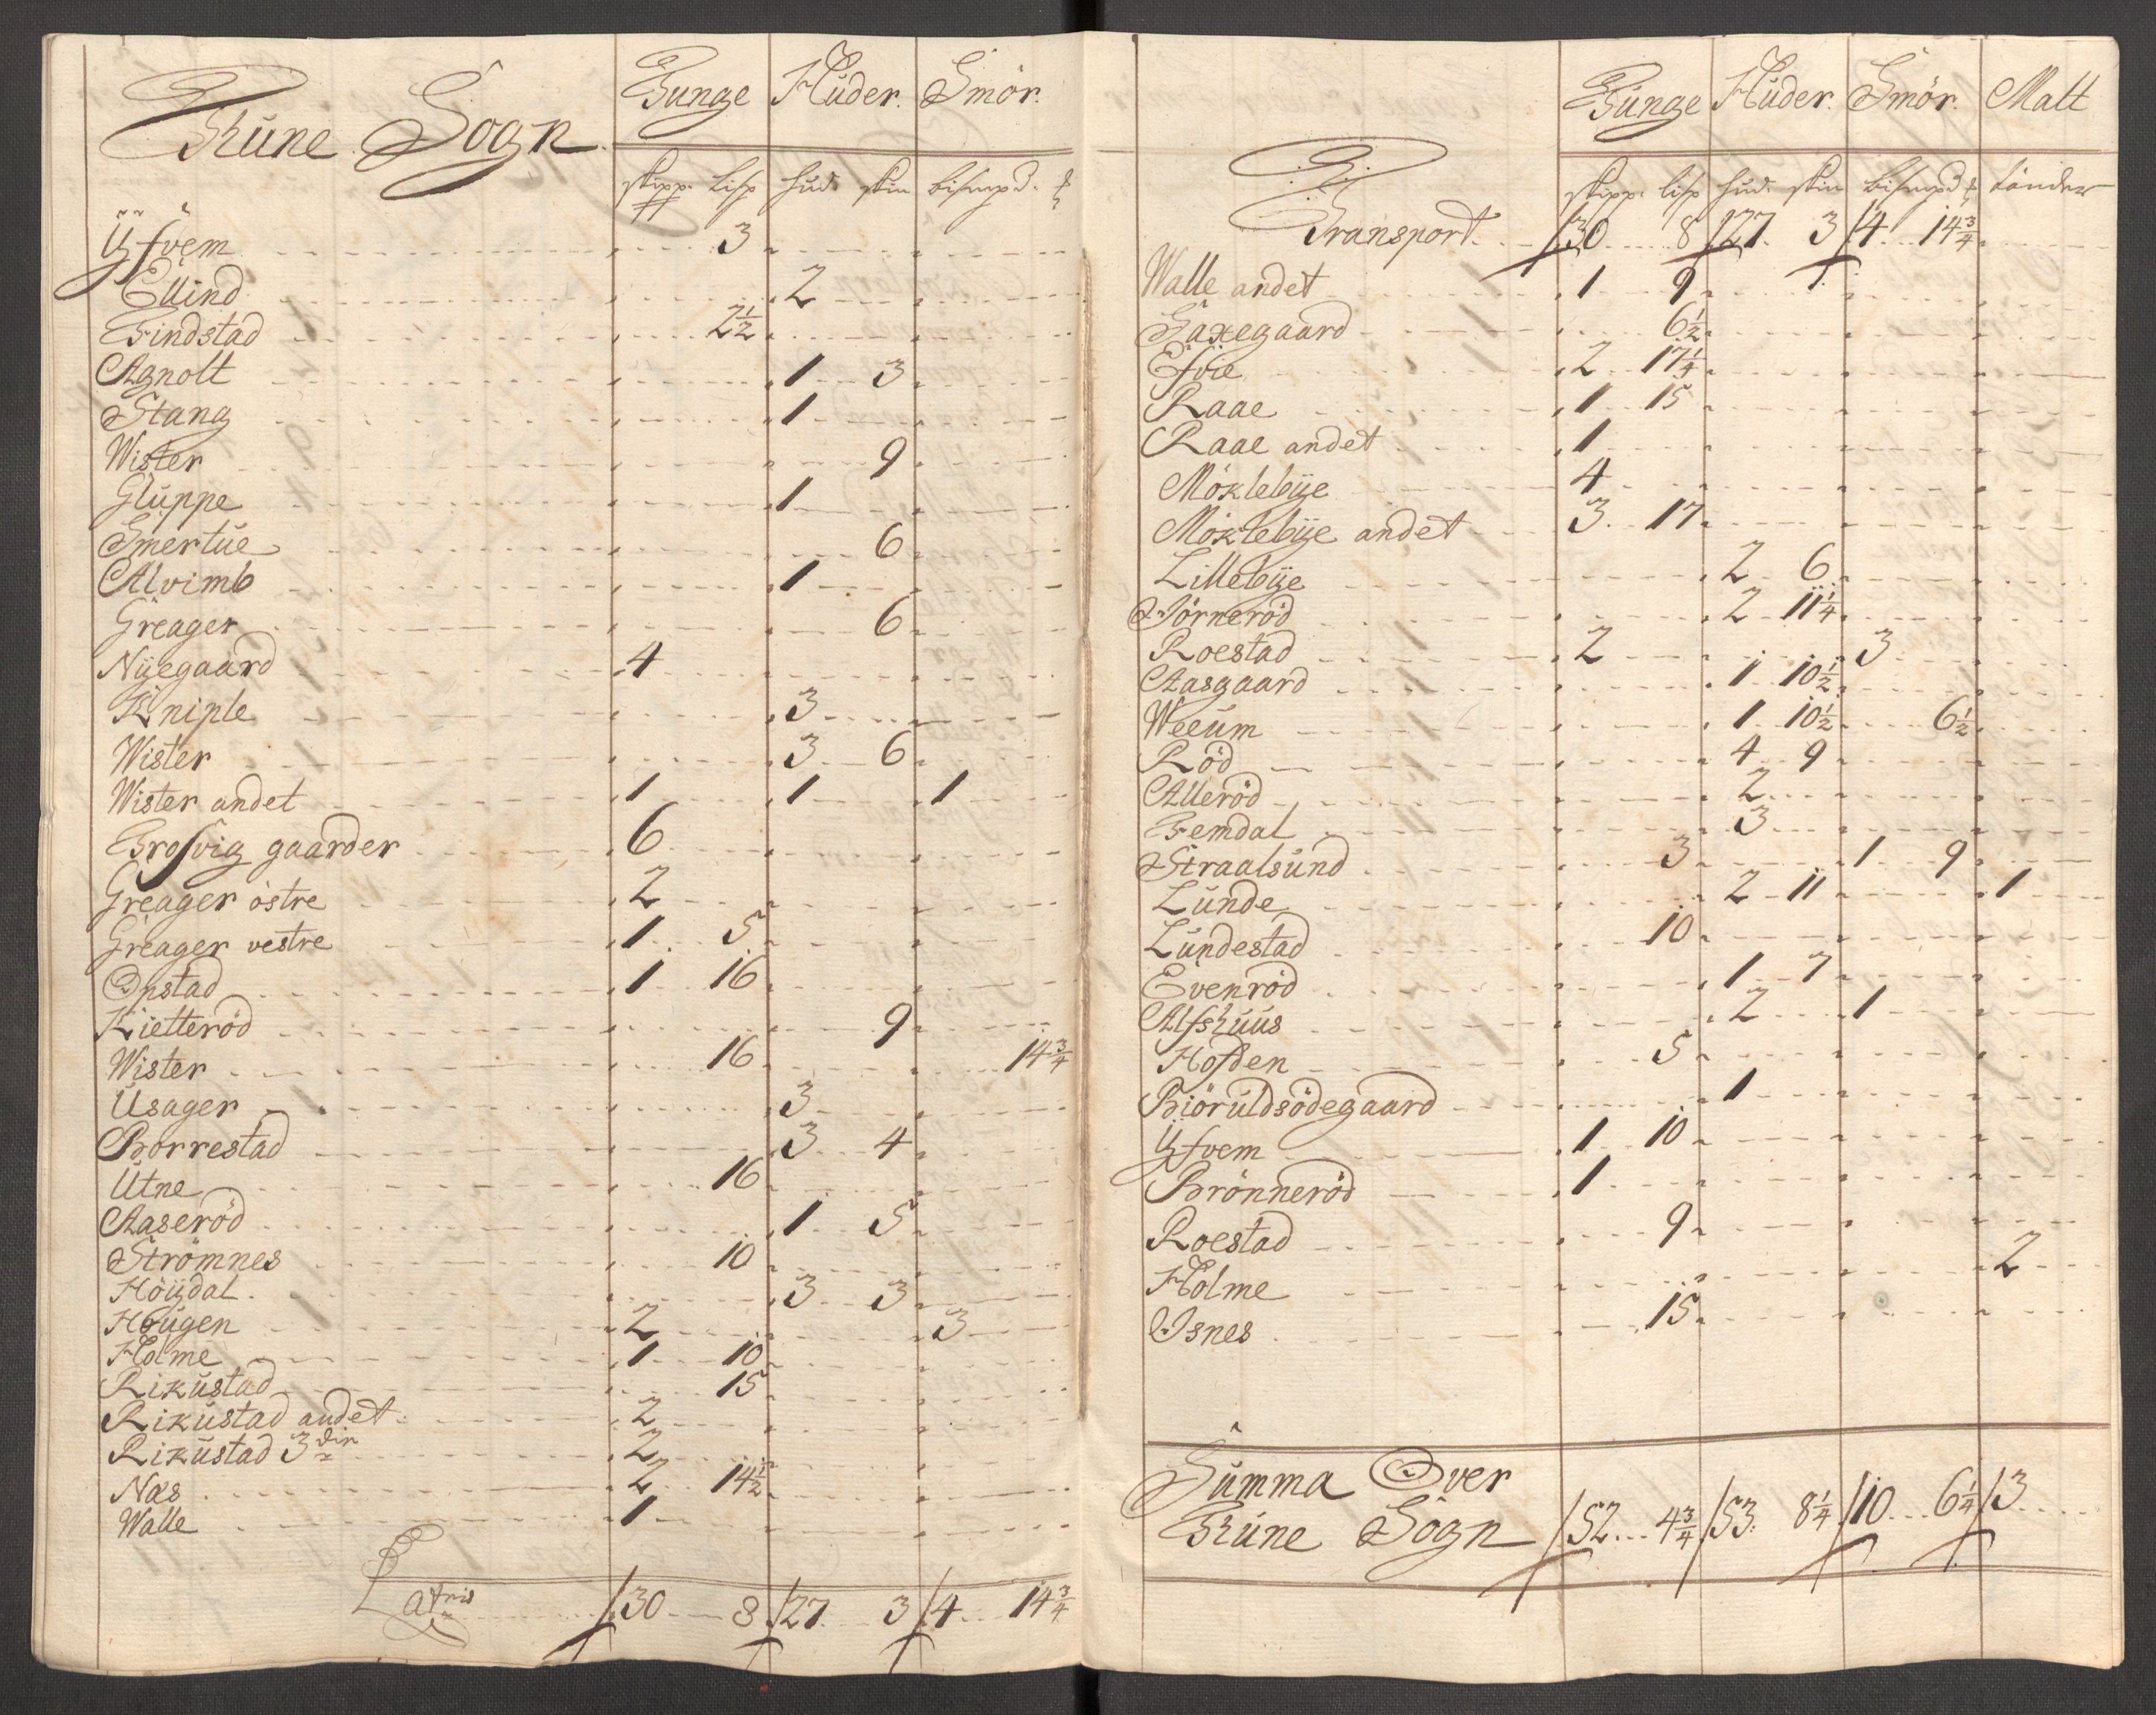 Thune Sogn. Tunge Huder. Smör.
skipp. lisp hud. skin bismpd.
Yfvem 3
Ellind 2
Findstad 2 1/2
Agnolt 1 3
Stang 1
Wister 9
Gluppe 1
Smertue 6
Alvimb 1
Greager 6
Nyegaard 4
Kniple 3
Wister 3 6
Wister andet 1 1 1
Trosvig gaarder 6
Greager östre 2
Greager vestre 1 5
Opstad 1 16
Kietteröd 9
Wister 16 14 3/4
Usager 3
Borrestad 3 4
Utne 16
Aaseröd 1 5
Strömnes 10
Höydal 3 3
Hougen 2 3
Holme 1 10
Rikustad 15
Rikustad andet 2
Rikustad 3die 2
Næs 2 14 1/2
Walle 1
Latris 30 8 27 3 4 14 3/4
Tunge Huder. Smör. Malt
skipp. lisp hud. skin bismpd tönder
Transport 30 8 27 3 4 14 3/4
Walle andet 1 9
Saxegaard 6 1/2
Efvie 2 17 1/4
Raae 1 15
Raae andet 1
Möklebye 4
Möklebye andet 3 17
Lillebye 2 6
Jörneröd 2 11 1/4
Roestad 2 3
Aasgaard 1 10 1/2
Weeum 1 10 1/2 6 1/2
Röd 4 9
Alleröd 2
Femdal 3
Straalsund 3 1 9
Lunde 2 11 1
Lundestad 10
Evenröd 1 7
Alfshuus 2 1
Hofden 5
Biöruldsödegaard 1
Yfvem 1 10
Brönneröd 1
Roestad 9
Holme 2
Isnes 15
Summa Over
Thune Sogn 52 4 3/4 53 8 1/4 10 6 1/4 3